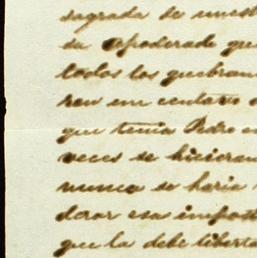 sagrada de nuest
su apoderado que
todos los quebran
sen un centavo
que tenia Pedro en
veces se hicieran
nunca se haria
derar esa impost
que la debe liberta